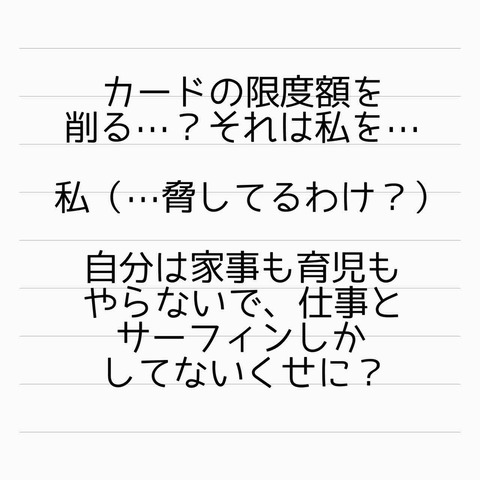 カードの限度額を
削る…？それは私を…
私（…脅してるわけ？）
自分は家事も育児も
やらないで、仕事と
サーフィンしか
してないくせに？